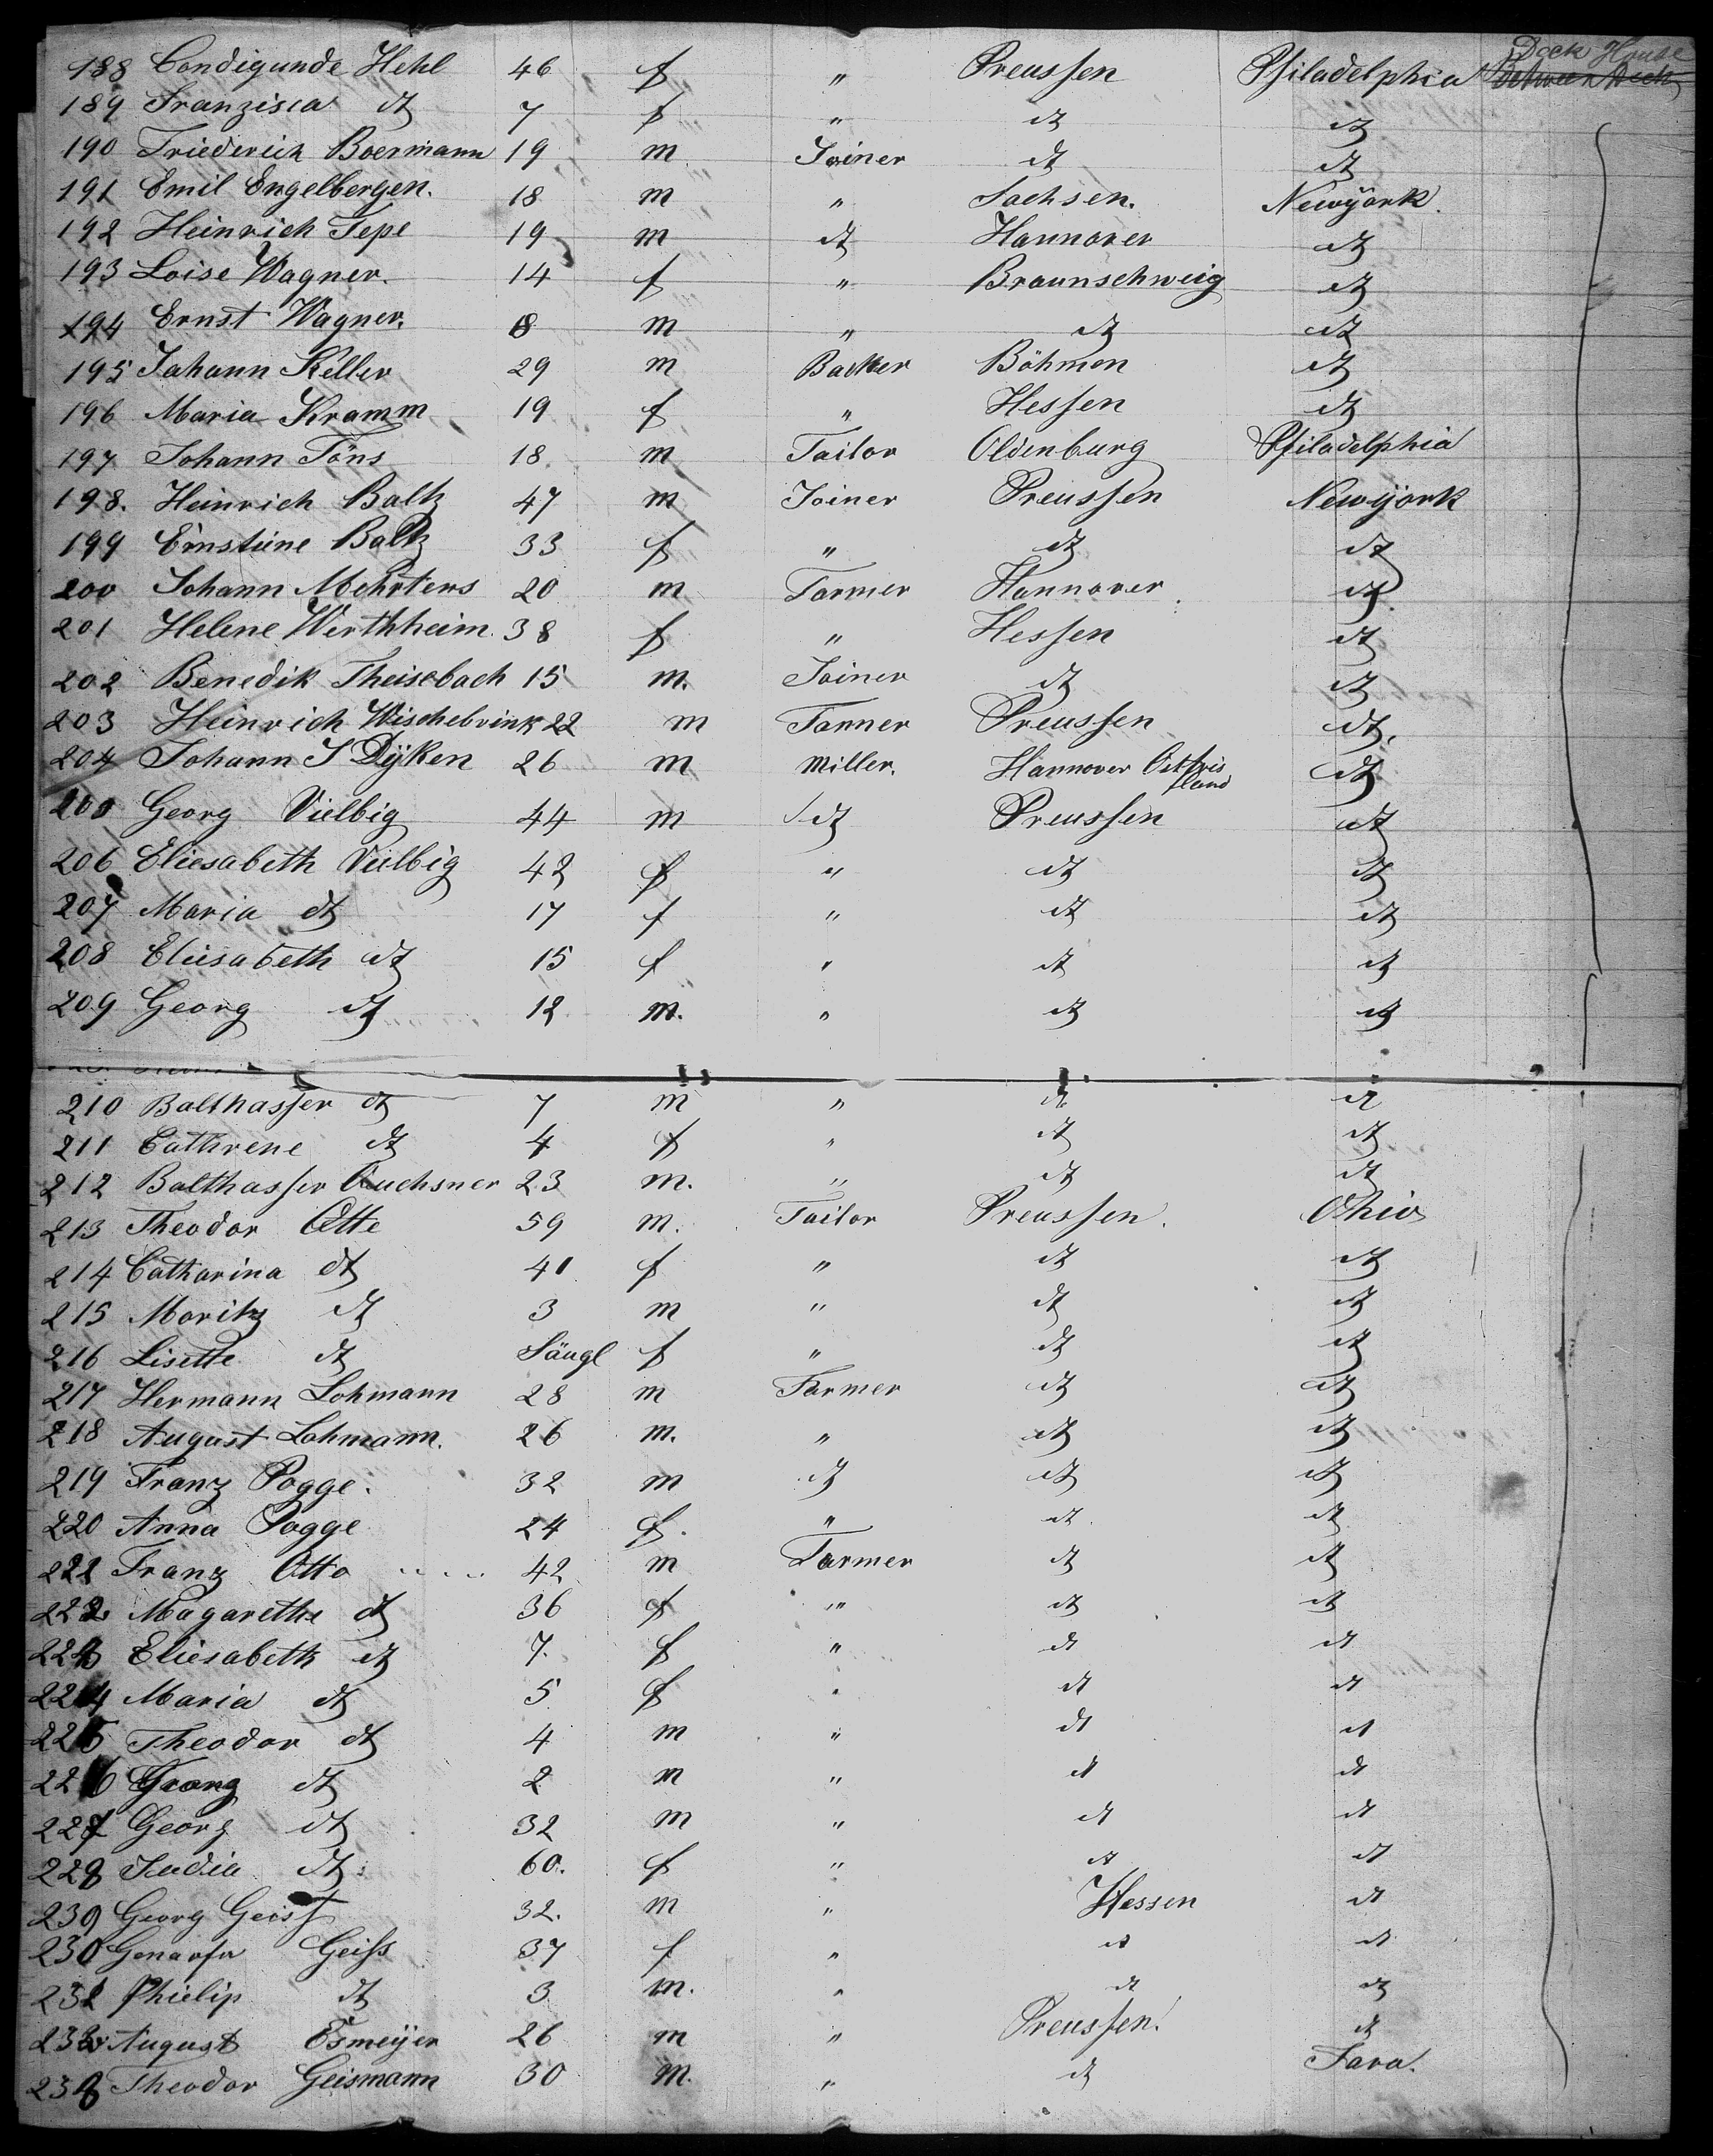 188 Condigunde Hehl 46 f " Preussen Philadelphia Deck House Between Deck
189 Franzisca dt 7 f " dt dt
190 Friederich Boermann 19 m Joiner dt dt
191 Emil Engelbergen. 18 m " Sachsen. Newyork.
192 Heinrich Tepe 19 m dt Hannover dt
193 Loise Wagner. 14 f " Braunschweig dt
194 Ernst Wagner. 8 m " dt dt
195 Johann Keller 29 m Backer Böhmen dt
196 Maria Kramm 19 f " Hessen dt
197 Johann Töns 18 m Tailor Oldenburg Philadelphia
198. Heinrich Baltz 47 m Joiner Preussen Newyork
199 Ernstiene Baltz 33 f " dt dt
200 Johann Mehrtens 20 m Farmer Hannover dt
201 Helene Werthheim. 38 f " Hessen dt
202 Benedik Theisebach 15 m. Joiner dt dt
203 Heinrich Wischebrink 22 m Tanner Preussen dt.
204 Johann S Dÿken 26 m Miller. Hannover Ostfrisland dt
Georg Vielbig 44 m dt Preussen dt
206 Eliesabeth Vielbig 42 f " dt dt
207 Maria dt 17 f " dt dt
208 Eliesabeth dt 15 f " dt dt
209 Georg dt 12 m. " dt dt
210 Balthasser dt 7 m " dt dt
211 Cathrene dt 4 f " dt dt
212 Balthasser Auchsner 23 m. " dt dt
213 Theodor Otte 59 m. Tailor Preussen. Ohio
214 Catharina dt 41 f " dt dt
215 Moritz dt 3 m " dt dt
216 Lisette dt Säugl f " dt dt
217 Hermann Lohmann 28 m Farmer dt dt
218 August Lohmann. 26 m. " dt dt
219 Franz Pogge. 32 m dt dt dt
220 Anna Pogge 24 f. " dt dt
221 Franz Otto 42 m Farmer dt dt
222 Magarethe dt 36 f " dt dt
223 Eliesabeth dt 7. f " dt dt
224 Maria dt 5 f " dt dt
225 Theodor dt 4 m " dt dt
226 Franz dt 2 m " dt dt
227 Georg dt 32 m " dt dt
228 dt 60. f " dt dt
239 Georg Geiss 32. m " Hessen dt
230 Geiss 37 f " dt dt
231 Phielip dt 3 m. " dt dt
232 August Esmeÿer 26 m " Preussen. dt
Theodor Geismann 30 m. " dt